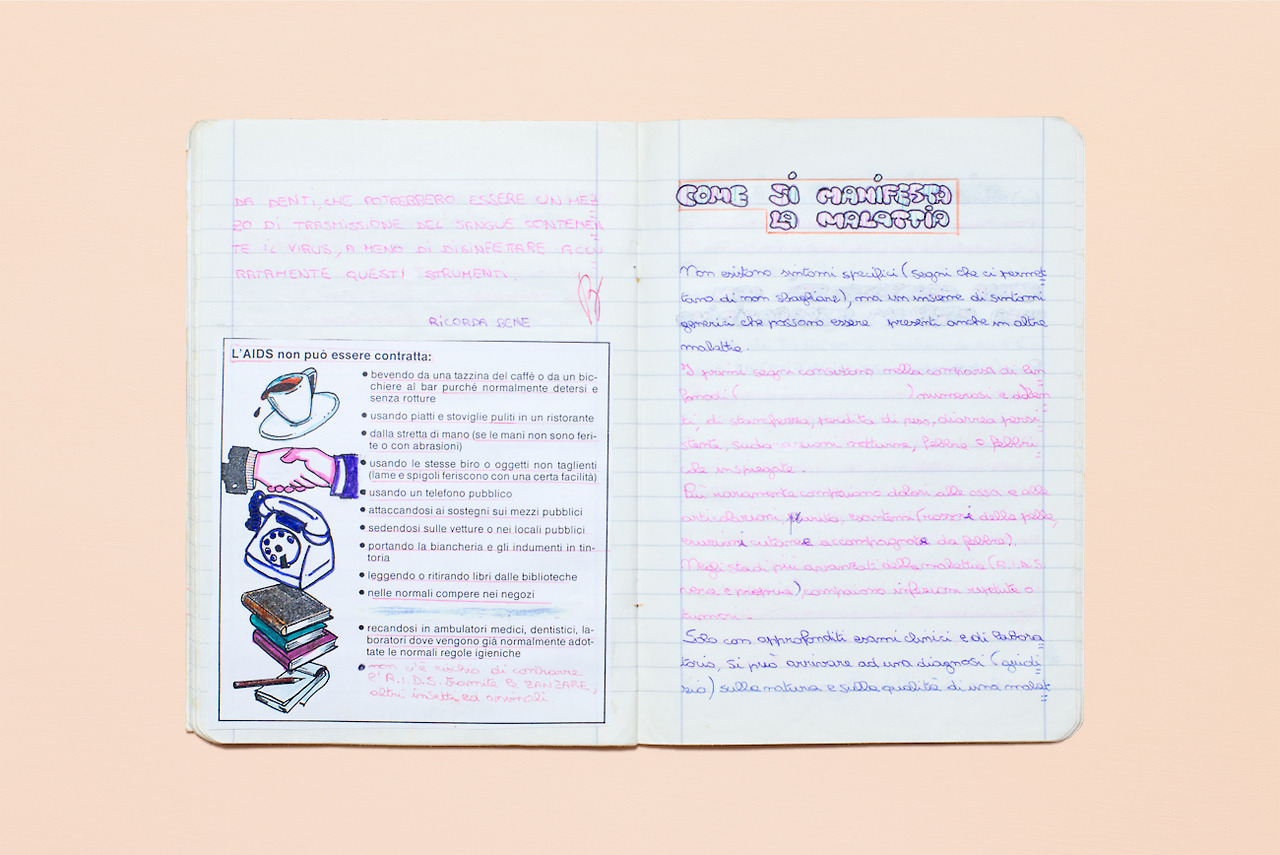 DA DENTI, CHE POTREBBERO ESSERE UN MEZ
ZO DI TRASMISSIONE DEL SANGUE CONTENEN
TE IL VIRUS, A MENO DI DISINFETTARE ACCU
RATAMENTE QUESTI STRUMENTI.
RICORDA BENE
L'AIDS non può essere contratta:
• bevendo da una tazzina del caffè o da un bic-
chiere al bar purché normalmente detersi e
senza rotture
• usando piatti e stoviglie puliti in un ristorante
• dalla stretta di mano (se le mani non sono feri-
te o con abrasioni)
• usando le stesse biro o oggetti non taglienti
(lame e spigoli feriscono con una certa facilità)
• usando un telefono pubblico
• attaccandosi ai sostegni sui mezzi pubblici
• sedendosi sulle vetture o nei locali pubblici
• portando la biancheria e gli indumenti in tin-
toria
• leggendo o ritirando libri dalle biblioteche
• nelle normali compere nei negozi
• recandosi in ambulatori medici, dentistici, la-
boratori dove vengono già normalmente adot-
tate le normali regole igieniche
• non c'è rischio di contrarre
l'A.I.D.S. tramite le ZANZARE,
altri insetti ed animali.
COME SI MANIFESTA
LA MALATTIA
Non esistono sintomi specifici (segni che ci permet
tano di non sbagliare), ma un insieme di sintomi
generici che possono essere presenti anche in altre
malattie.
I primi segni consistono nella comparsa di lin
fonodi ( ) numerosi e dolen
ti, di stanchezza, perdita di peso, diarrea persi
stente, sudorazioni notturne, febbre o febbri
cole inspiegate.
Più raramente compaiono dolori alle ossa e alle
articolazioni, prurito, esantemi (rossori della pelle,
eruzioni cutanee accompagnate da febbre).
Negli stadi più avanzati della malattia (A.I.D.S
vera e propria) compaiono infezioni ripetute o
tumori.
Solo con approfonditi esami clinici e di labora
torio, si può arrivare ad una diagnosi (giudi
zio) sulla natura e sulla qualità di una malat